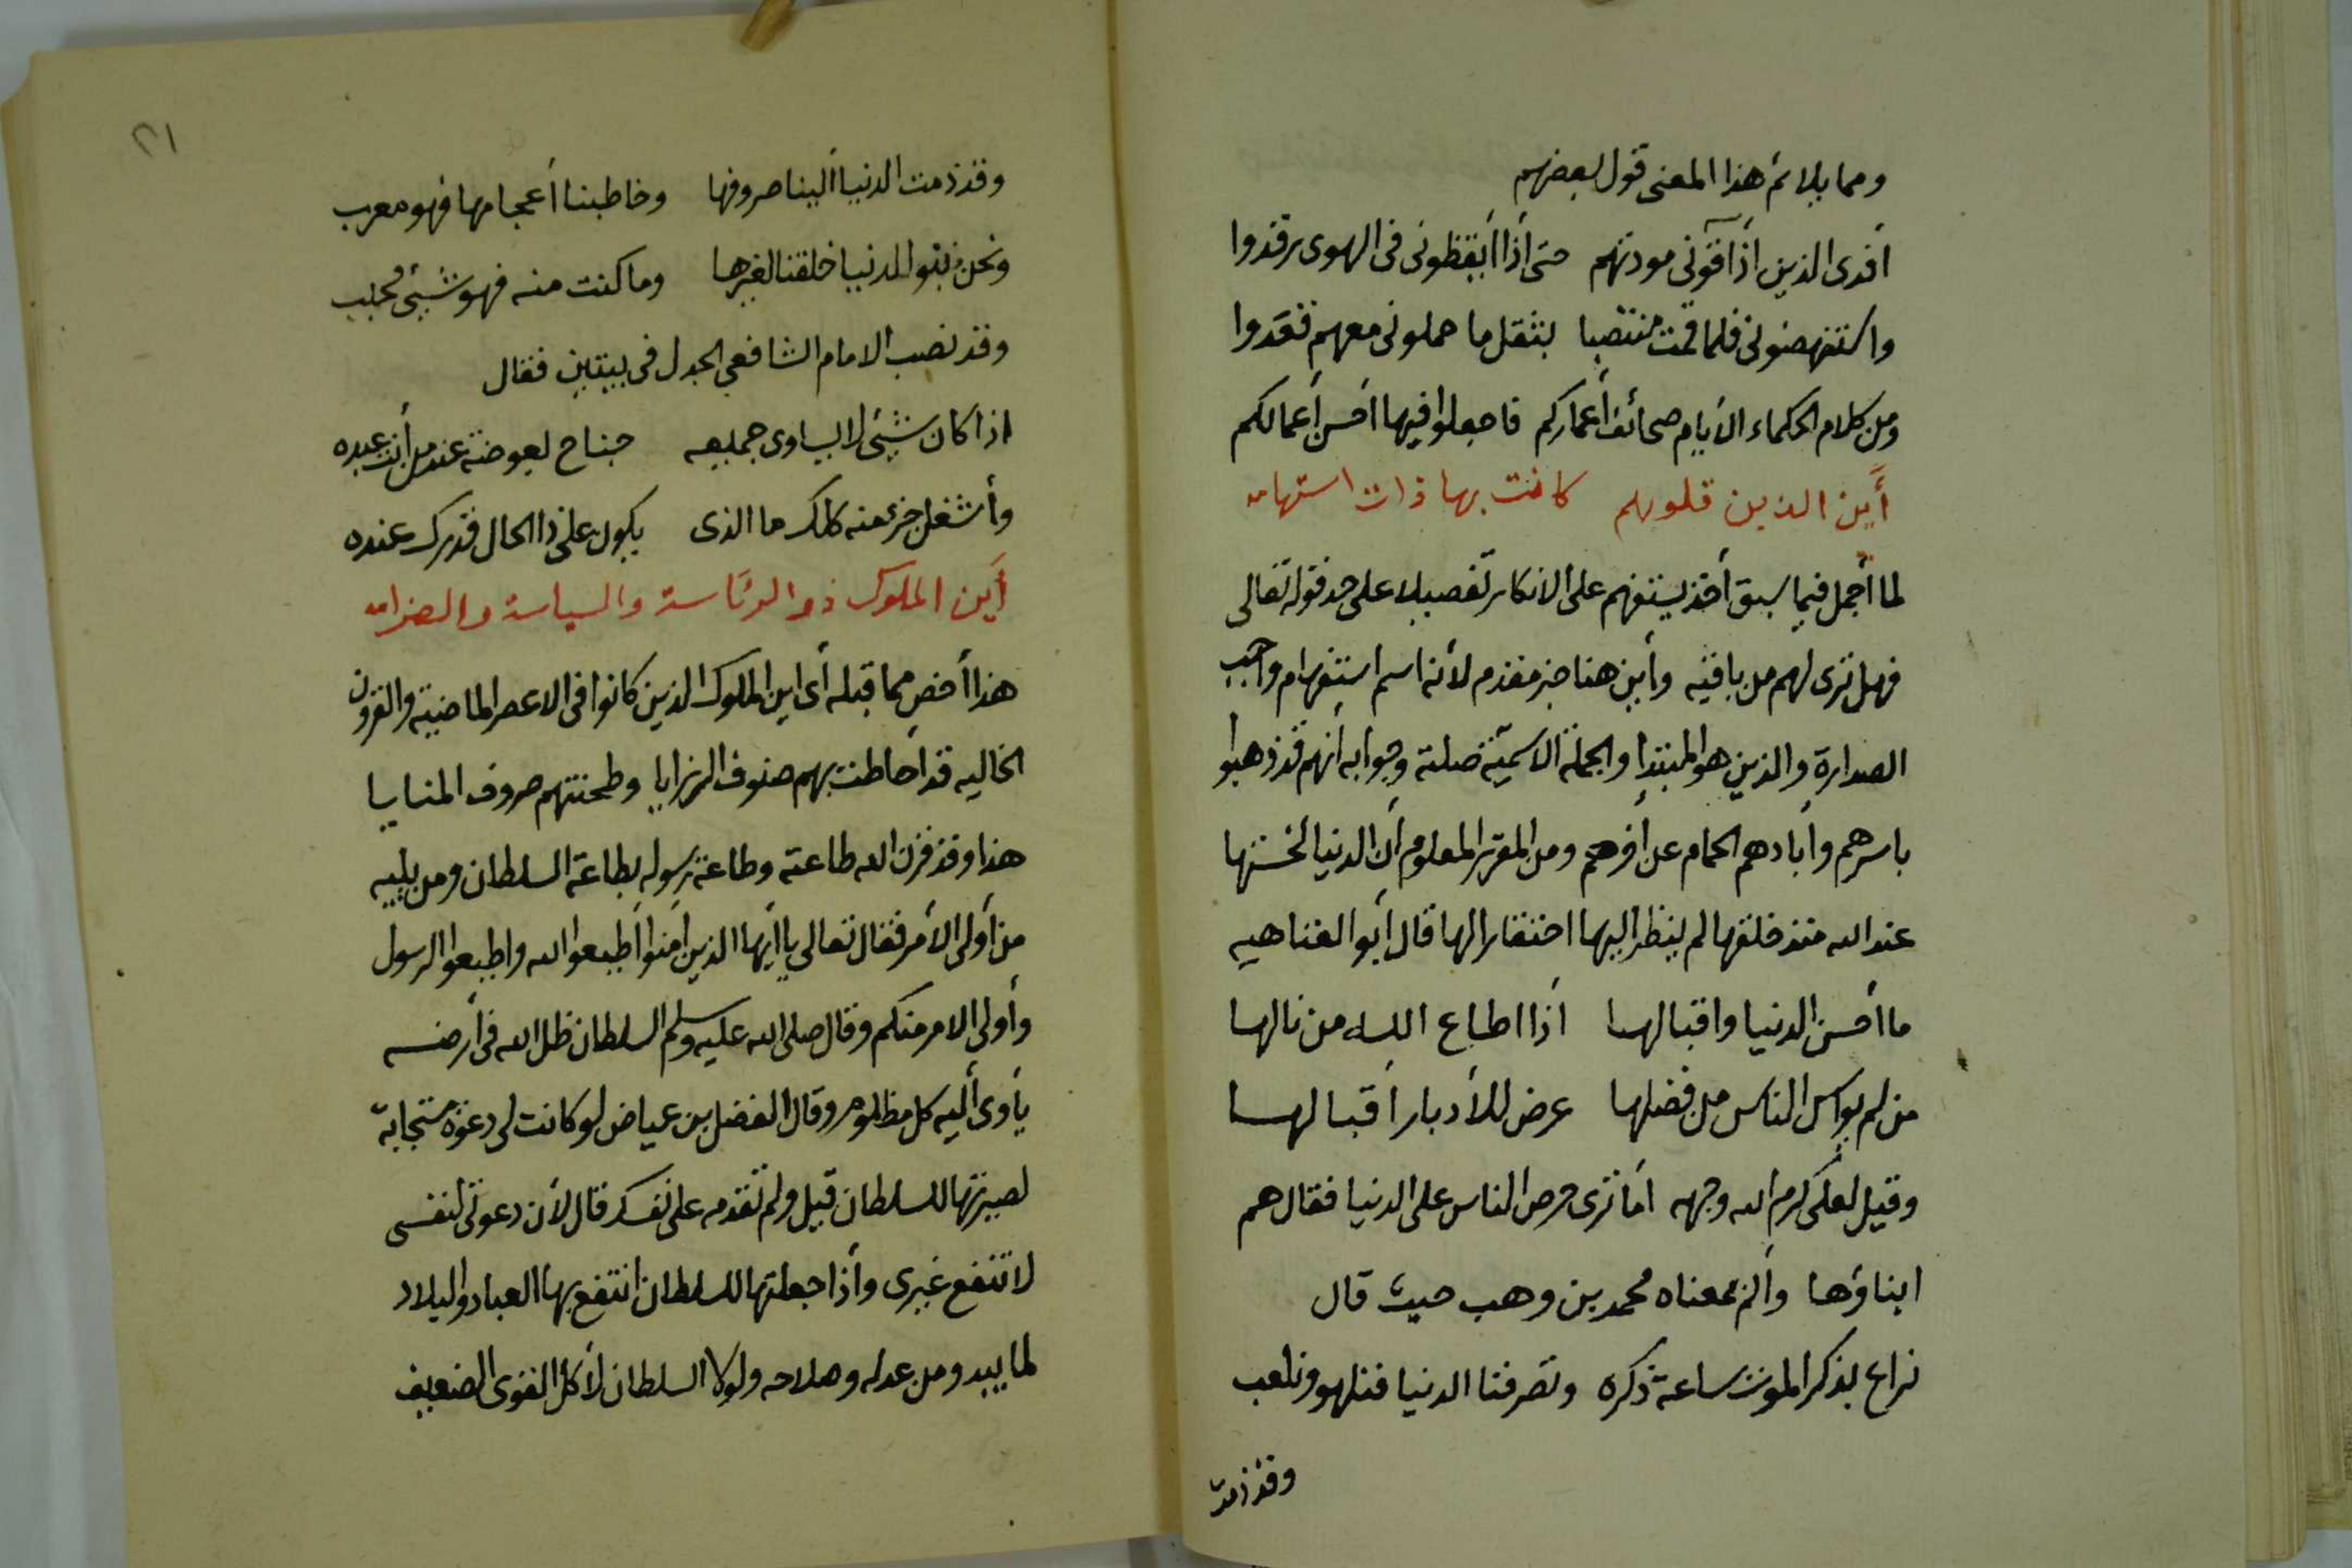 ومما يلائم هذا المعنى قول بعضهم
أفدى الذين أذاقونى مودتهم حتى أذا أيقظونى فى الهوى رقدوا
واستنهضونى فلما قمت منتصبا بثقل ما حملونى معهم قعدوا
ومن كلام الحكماء الأيام صحائف أعماركم فاجعلوا فيها أحسن أعمالكم
أين الذين قلوبهم كانت بها ذات استهامه
لما أجمل فيما سبق أخذ يستفهم على الانكار تفصيلا على حد قوله تعالى
فهل ترى لهم من باقيه وأين هنا خبر مقدم لأنه اسم استفهام واجب
الصدارة والذين هو المبتدأ والجملة الاسمية صلته وجوابه أنهم قد ذهبوا
باسرهم وأبادهم الحمام عن أخرهم ومن المقرر المعلوم أن الدنيا لخستها
عند الله منذ خلقها لم ينظر اليها احتقارا لها قال أبو العتاهيه
ما أحسن الدنيا واقبالها أذا اطاع الله من نالها
من لم يواس الناس من فضلها عرض للأدبار أقبالها
وقيل لعلى كرم الله وجهه أما ترى حرص الناس على الدنيا فقال هم
ابناؤها وألم بمعناه محمد بن وهب حيث قال
نراع بذكر الموت ساعة ذكره وتصرفنا الدنيا فنلهو ونلعب
وقد ذمت
٢١
وقد ذمت الدنيا ألينا صروفها وخاطبنا أعجامها فهو معرب
ونحن بنو الدنيا خلقنا لغيرها وما كنت منه فهو شيئ محبب
وقد نصب الامام الشافعي الجدل فى بيتين فقال
اذا كان شيئ لا يساوى جميعه جناح بعوضة عند من أنت عبده
وأشغل جزء منه كلك ما الذى يكون على ذا الحال قدرك عنده
أين الملوك ذو الرئاسة والسياسة والصرامه
هذا أخص مما قبله أى اين الملوك الذين كانوا فى الاعصر الماضية والقرون
الخاليه قد أحاطت بهم صنوف الرزايا وطحنتهم صروف المنايا
هذا وقد قرن الله طاعته وطاعة رسوله بطاعة السلطان ومن يليه
من أولى الأمر فقال تعالى يا أيها الذين أمنوا أطيعوا الله واطيعوا الرسول
وأولى الامر منكم وقال صلى الله عليه وسلم السلطان ظل الله فى أرضه
يأوى أليه كل مظلوم وقال الفضل بن عياض لو كانت لى دعوة مستجابة
لصيرتها للسلطان قيل ولم تقدمه على نفسك قال لأن دعوتى لنفسى
لا تنفع غيرى وأذا جعلتها للسلطان انتفع بها العباد والبلاد
لما يبدو من عدله وصلاحه ولولا السلطان لأكل القوى الضعيف